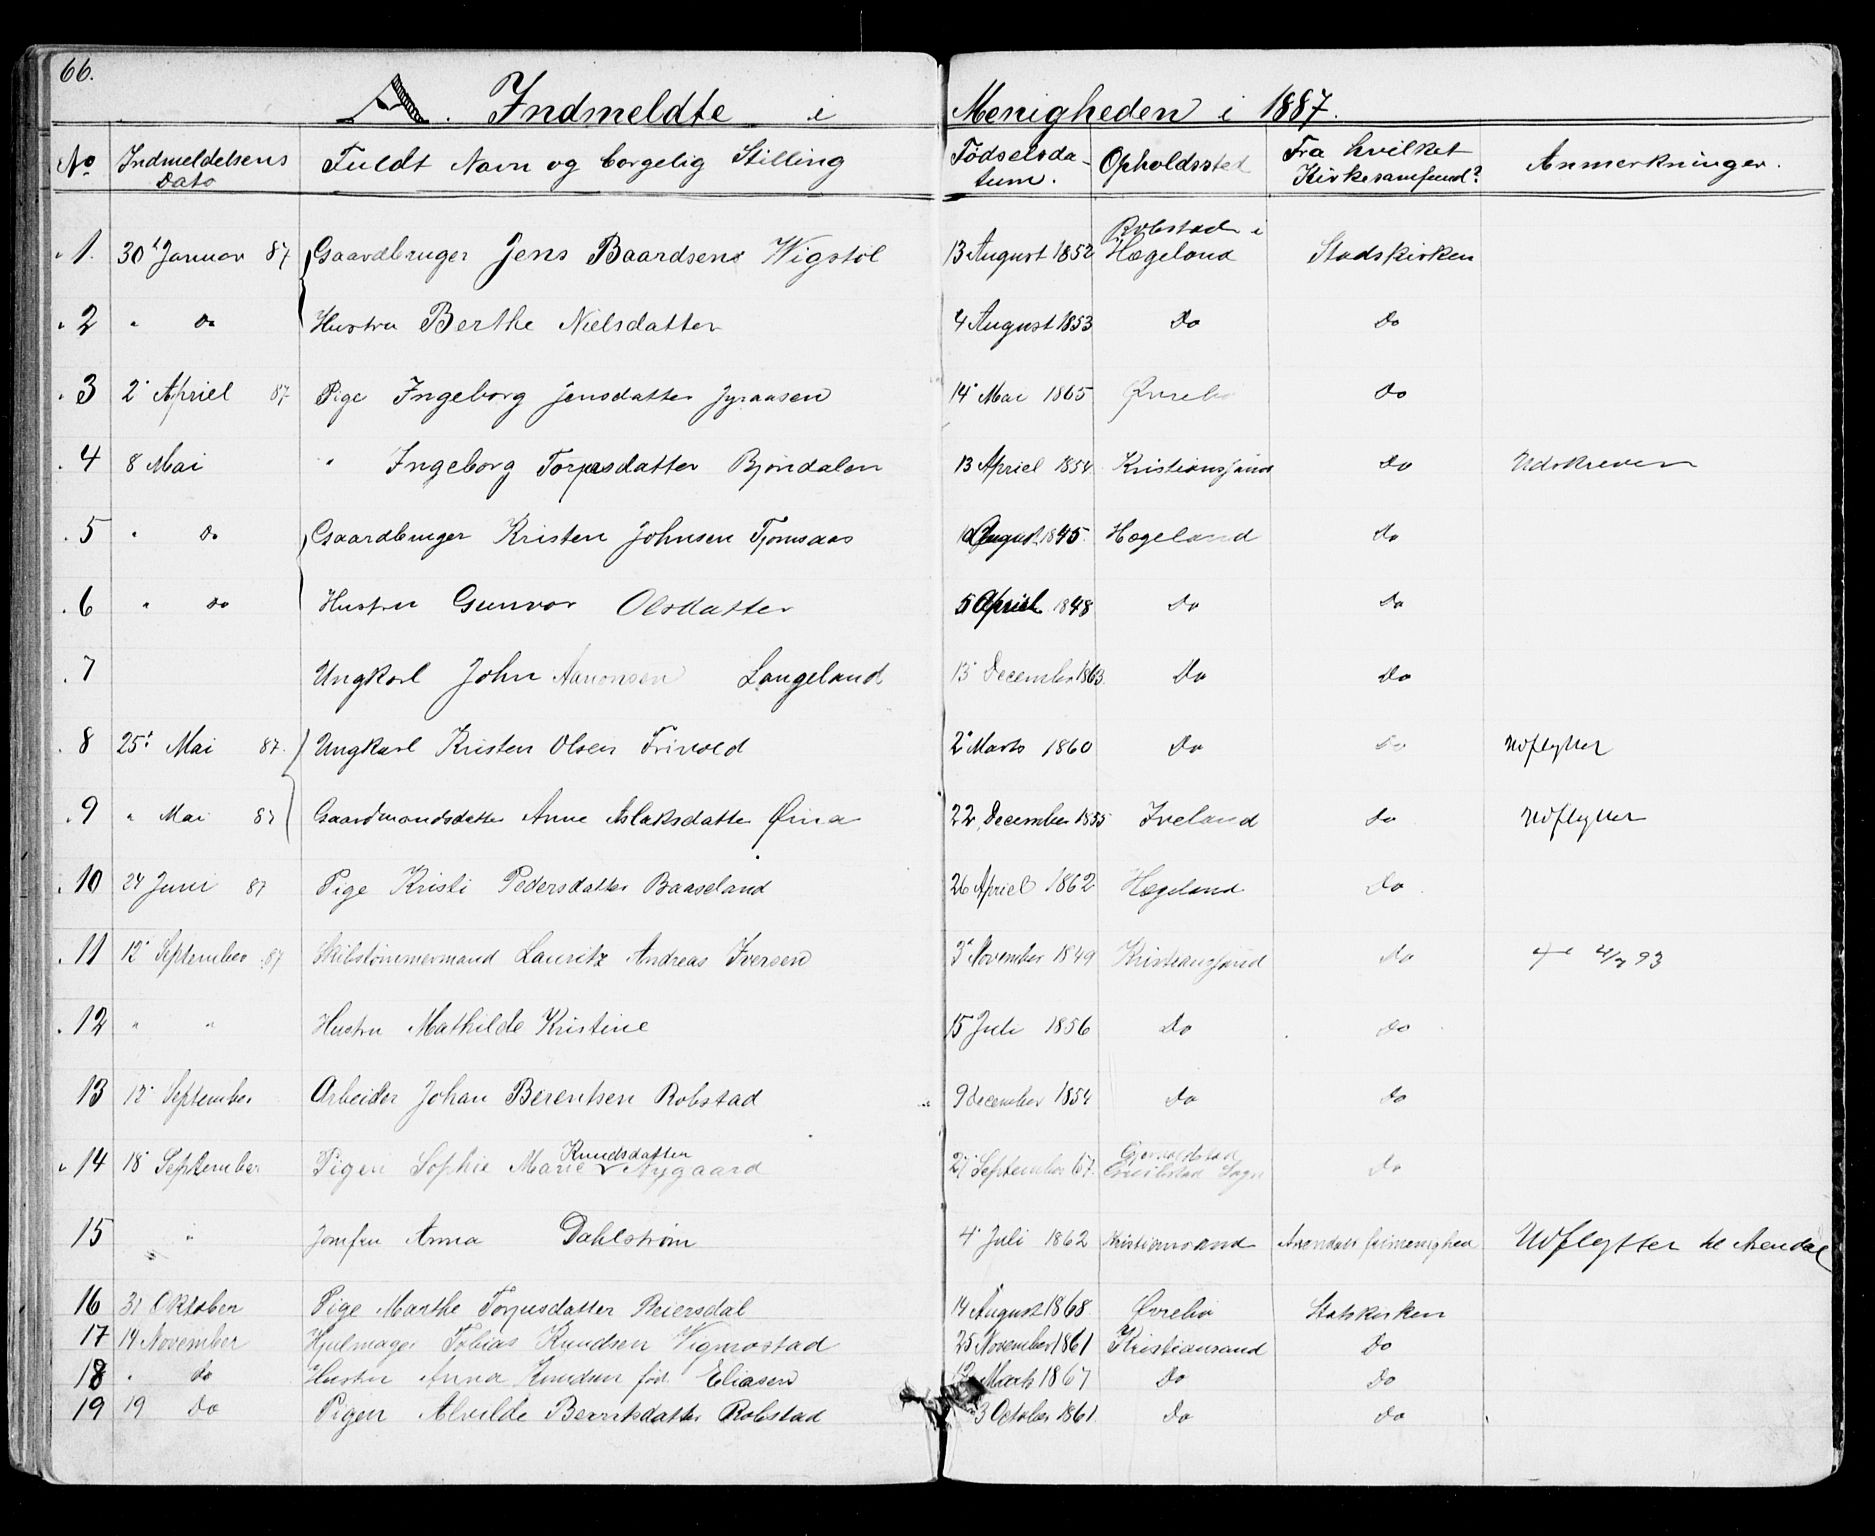 66.
A. Indmeldte i Menigheden i 1887.
No Indmeldelsens Dato Fuldt Navn og borgelig Stilling Födselsdatum. Opholdssted Fra hvilket Kirkesamfund? Anmerkninger.
1. 30t Januar 87 Gaardbruger Jens Baardsen Wigstöl 13 August 1852 Robstad i Hægeland Stadskirken
2 " Do Hustru Berthe Nielsdatter 4 August 1853 Do Do
3 2' Apriel 87 Pige Ingeborg Jensdatter Jyraasen 14' Mai 1865 Øvrebo Do
4 8 Mai " Ingeborg Torjusdatter Bjöndalen 13 Apriel 1854 Kristiansand Do Udskreven
5 " Do Gaardbruger Kristen Johnsen Tjomsaas August 1845. Hægeland Do
6 " Do Hustru Gunvor Olsdatter 5 Apriel 1848 Do Do
7 Ungkarl John Aanonsen Langeland 13' December 1863. Do Do
8 25' Mai 87. Ungkarl Kristen Olsen Frivold 2' Marts 1860 Do Do Udflytter
9 " Mai 87 Gaardmandsdatter Anne Aslaksdatter Øina 22, December 1855 Iveland Do Udflytter
10 24 Juni 87 Pige Kristi Pedersdatter Baaseland 26 Apriel 1862 Hægeland Do
11 12' September 87 Skibstömmermand Lauritz Andreas Iversen 3' November 1849 Kristiansand Do + 4/7 93
12 " " Hustru Mathilde Kristine 15 Juli 1856 Do Do
13 12' September Arbeider Johan Berentsen Robstad 9 december 1854 Do Do
14 18' September Pigen Sophie Marie Knudsdatter Nygaard 27' September 67. Sogn Do
15 " Jomfru Anna Dahlström 4' Juli 1862 Kristiansand Arendals frimenighed Udflytter til Arendal
16 31 Oktober Pige Marthe Torjusdatter Reiersdal 14 August 1868 Øvrebø Statskirken
17 14 November Hjulmager Tobias Knudsen Vigmostad 25 November 1861 Kristiansand Do
18 " do Hustru Anna Knudsen föd Eliasen 12 Marts 1867 Do Do
19 19 Do Pigen Alvilde Berntsdatter Robstad 3 October 1861. Do Do